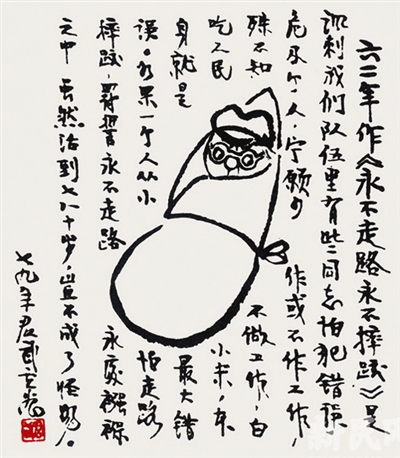 六二年作《永不走路永不摔跤》是
讽刺我们队伍里有些同志怕犯错误
危及个人,宁愿少作或不作工作,
殊不知不做工作,白
吃人民小米,本
身就是最大错
误。如果一个人从小怕走路
摔跤,罚誓永不走路永处襁褓
之中虽然活到七八十岁,岂不成了怪物。
七九年君武重画